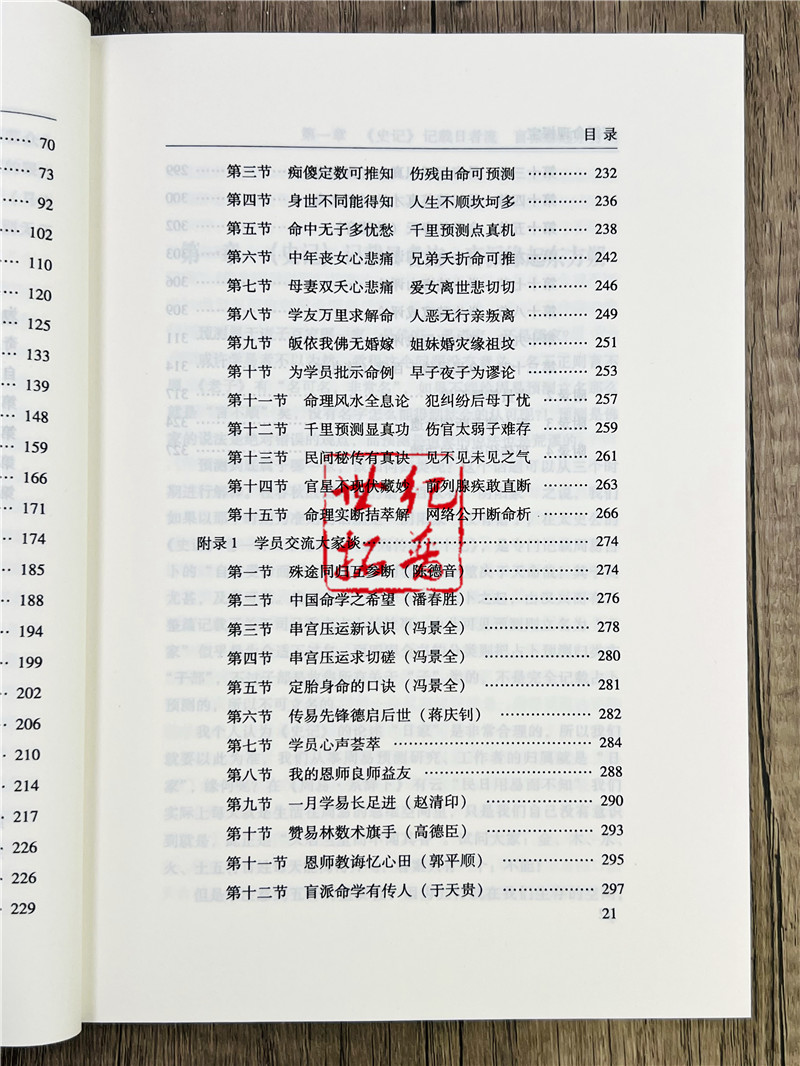 70
73
92
102
110
120
125
133
139
148
159
166
171
174
185
188
194
199
202
206
210
214
217
226
226
229
目录
第三节 痴傻定数可推知 伤残由命可预测 ………… 232
第四节 身世不同能得知 人生不顺坎坷多 ………… 236
第五节 命中无子多忧愁 千里预测点真机 ………… 238
第六节 中年丧女心悲痛 兄弟夭折命可推 ………… 242
第七节 母妻双夭心悲痛 爱女离世悲切切 ………… 246
第八节 学友万里求解命 人恶无行亲叛离 ………… 249
第九节 皈依我佛无婚嫁 姐妹婚灾缘祖坟 ………… 251
第十节 为学员批示命例 早子夜子为谬论 ………… 253
第十一节 命理风水全息论 犯纠纷后母丁忧 ……… 257
第十二节 千里预测显真功 伤官太弱子难存 ……… 259
第十三节 民间秘传有真诀 见不见未见之气 ……… 261
第十四节 官星不现伏藏妙 前列腺疾敢直断 ……… 263
第十五节 命理实断拮萃解 网络公开断命析 ……… 266
附录1 学员交流大家谈 ………………………………… 274
第一节 殊途同归互参断(陈德音) ………………… 274
第二节 中国命学之希望(潘春胜) ………………… 276
第三节 串宫压运新认识(冯景全) ………………… 278
第四节 串宫压运求切磋(冯景全) ………………… 280
第五节 定胎身命的口诀(冯景全) ………………… 281
第六节 传易先锋德启后世(蒋庆钊) ……………… 282
第七节 学员心声荟萃 ……………………………… 284
第八节 我的恩师良师益友 ………………………… 288
第九节 一月学易长足进(赵清印) ………………… 290
第十节 赞易林数术旗手(高德臣) ………………… 293
第十一节 恩师教诲忆心田(郭平顺) ……………… 295
第十二节 盲派命学有传人(于天贵) ……………… 297
21
世纪
拓普